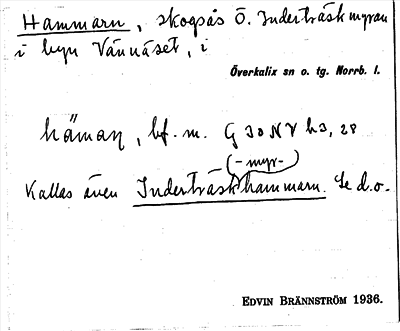 Hammarn, skogsås Ö. Inderträskmyran
i byn Vännäset, i
Överkalix sn o. tg. Norrb. l.
hämaɳ, bf. m. G 30 N V h3, 28
(-myr-)
Kallas även Inderträskhammarn. Se d.o.
EDVIN BRÄNNSTRÖM 1936.